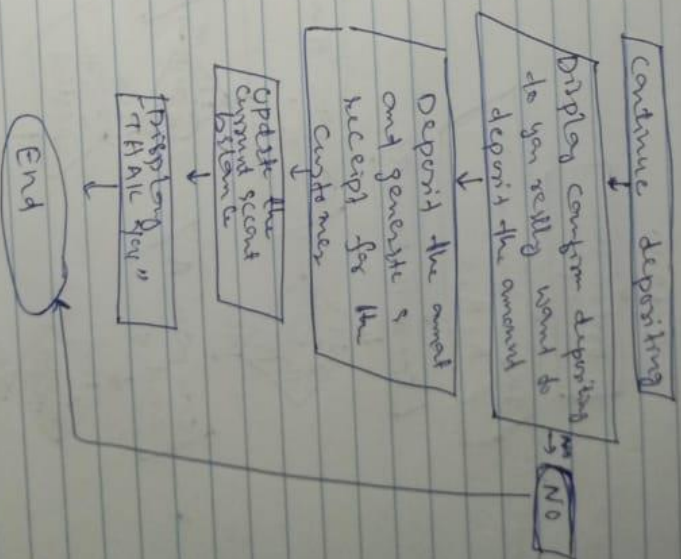 Continue depositing
Display confirm depositing
do you really want to
deposit the amount
NO
Deposit the amout
and generate a
receipt for the
customer
Update the
current account
balance
Display
"THAK You"
End